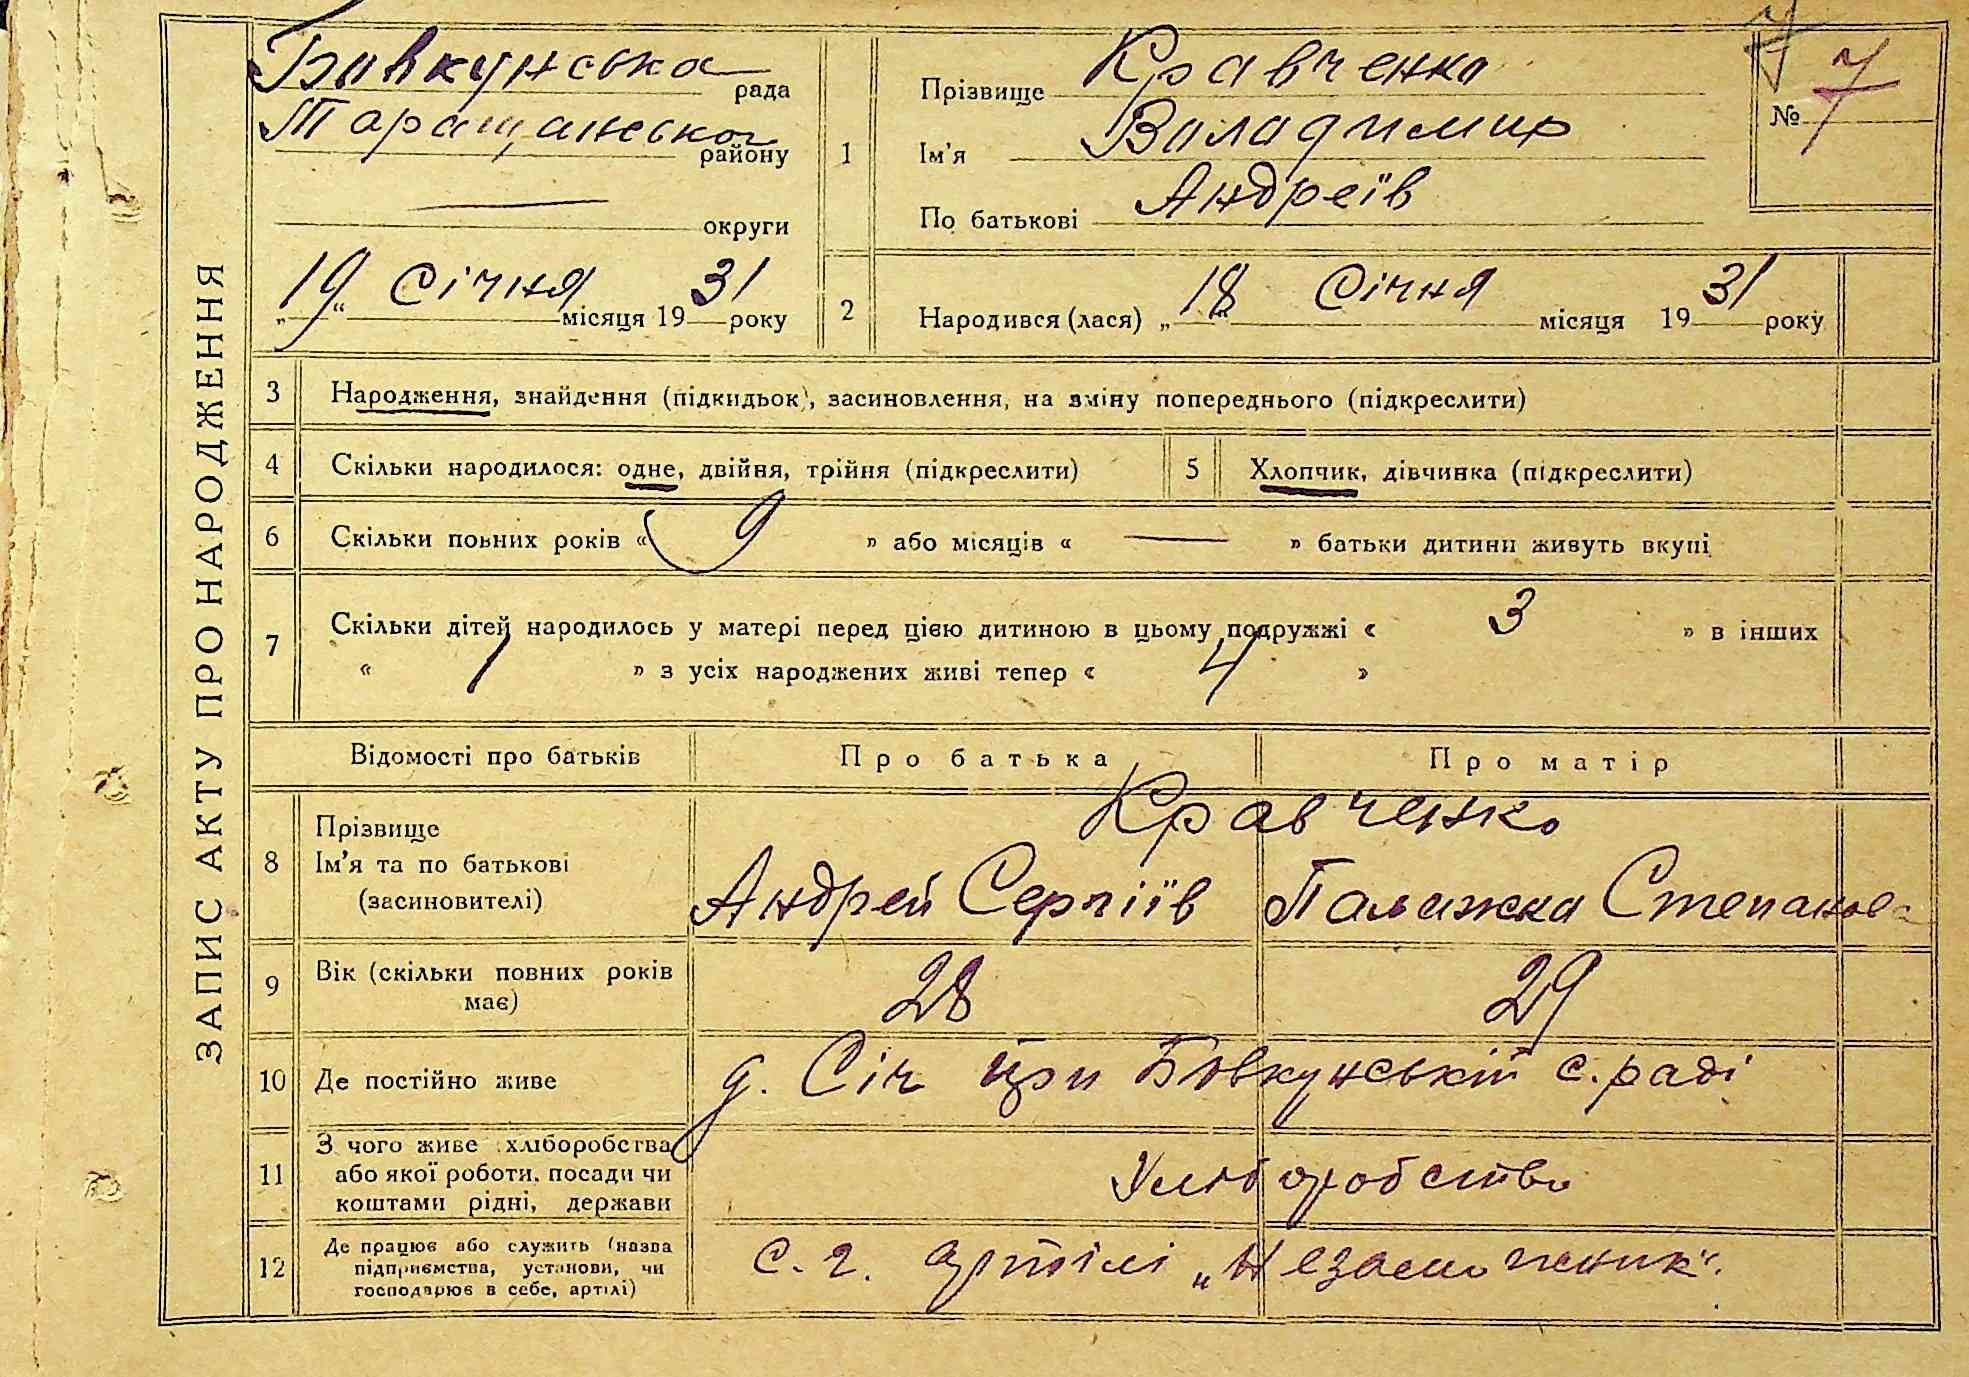 ЗАПИС АКТУ ПРО НАРОДЖЕННЯ
Бовкунська рада
Таращанського району
— округи
„19“ Січня місяця 1931 року
1
Прізвище Кравченко
Ім'я Володимир
По батькові Андреїв
№ 7
7
2
Народився (лася) „18“ Січня місяця 1931 року
3 Народження, знайдення (підкидьок), засиновлення, на зміну попереднього (підкреслити)
4 Скільки народилося: одне, двійня, трійня (підкреслити)
5 Хлопчик, дівчинка (підкреслити)
6 Скільки повних років « 9 » або місяців « — » батьки дитини живуть вкупі
7 Скільки дітей народилось у матері перед цією дитиною в цьому подружжі « 3 » в інших
« 1 » з усіх народжених живі тепер « 4 »
Відомості про батьків Про батька Про матір
8 Прізвище
Ім'я та по батькові
(засиновителі)
Кравченко
Андрей Сергіїв
Палажка Степанов
9 Вік (скільки повних років
має)
28 29
10 Де постійно живе д. Січ при Бовкунській с. раді
11 З чого живе хліборобства
або якої роботи, посади чи
коштами рідні, держави
Хліборобство
12 Де працює або служить (назва
підприємства, установи, чи
господарює в себе, артілі)
с. г. артілі „Незаможник“.